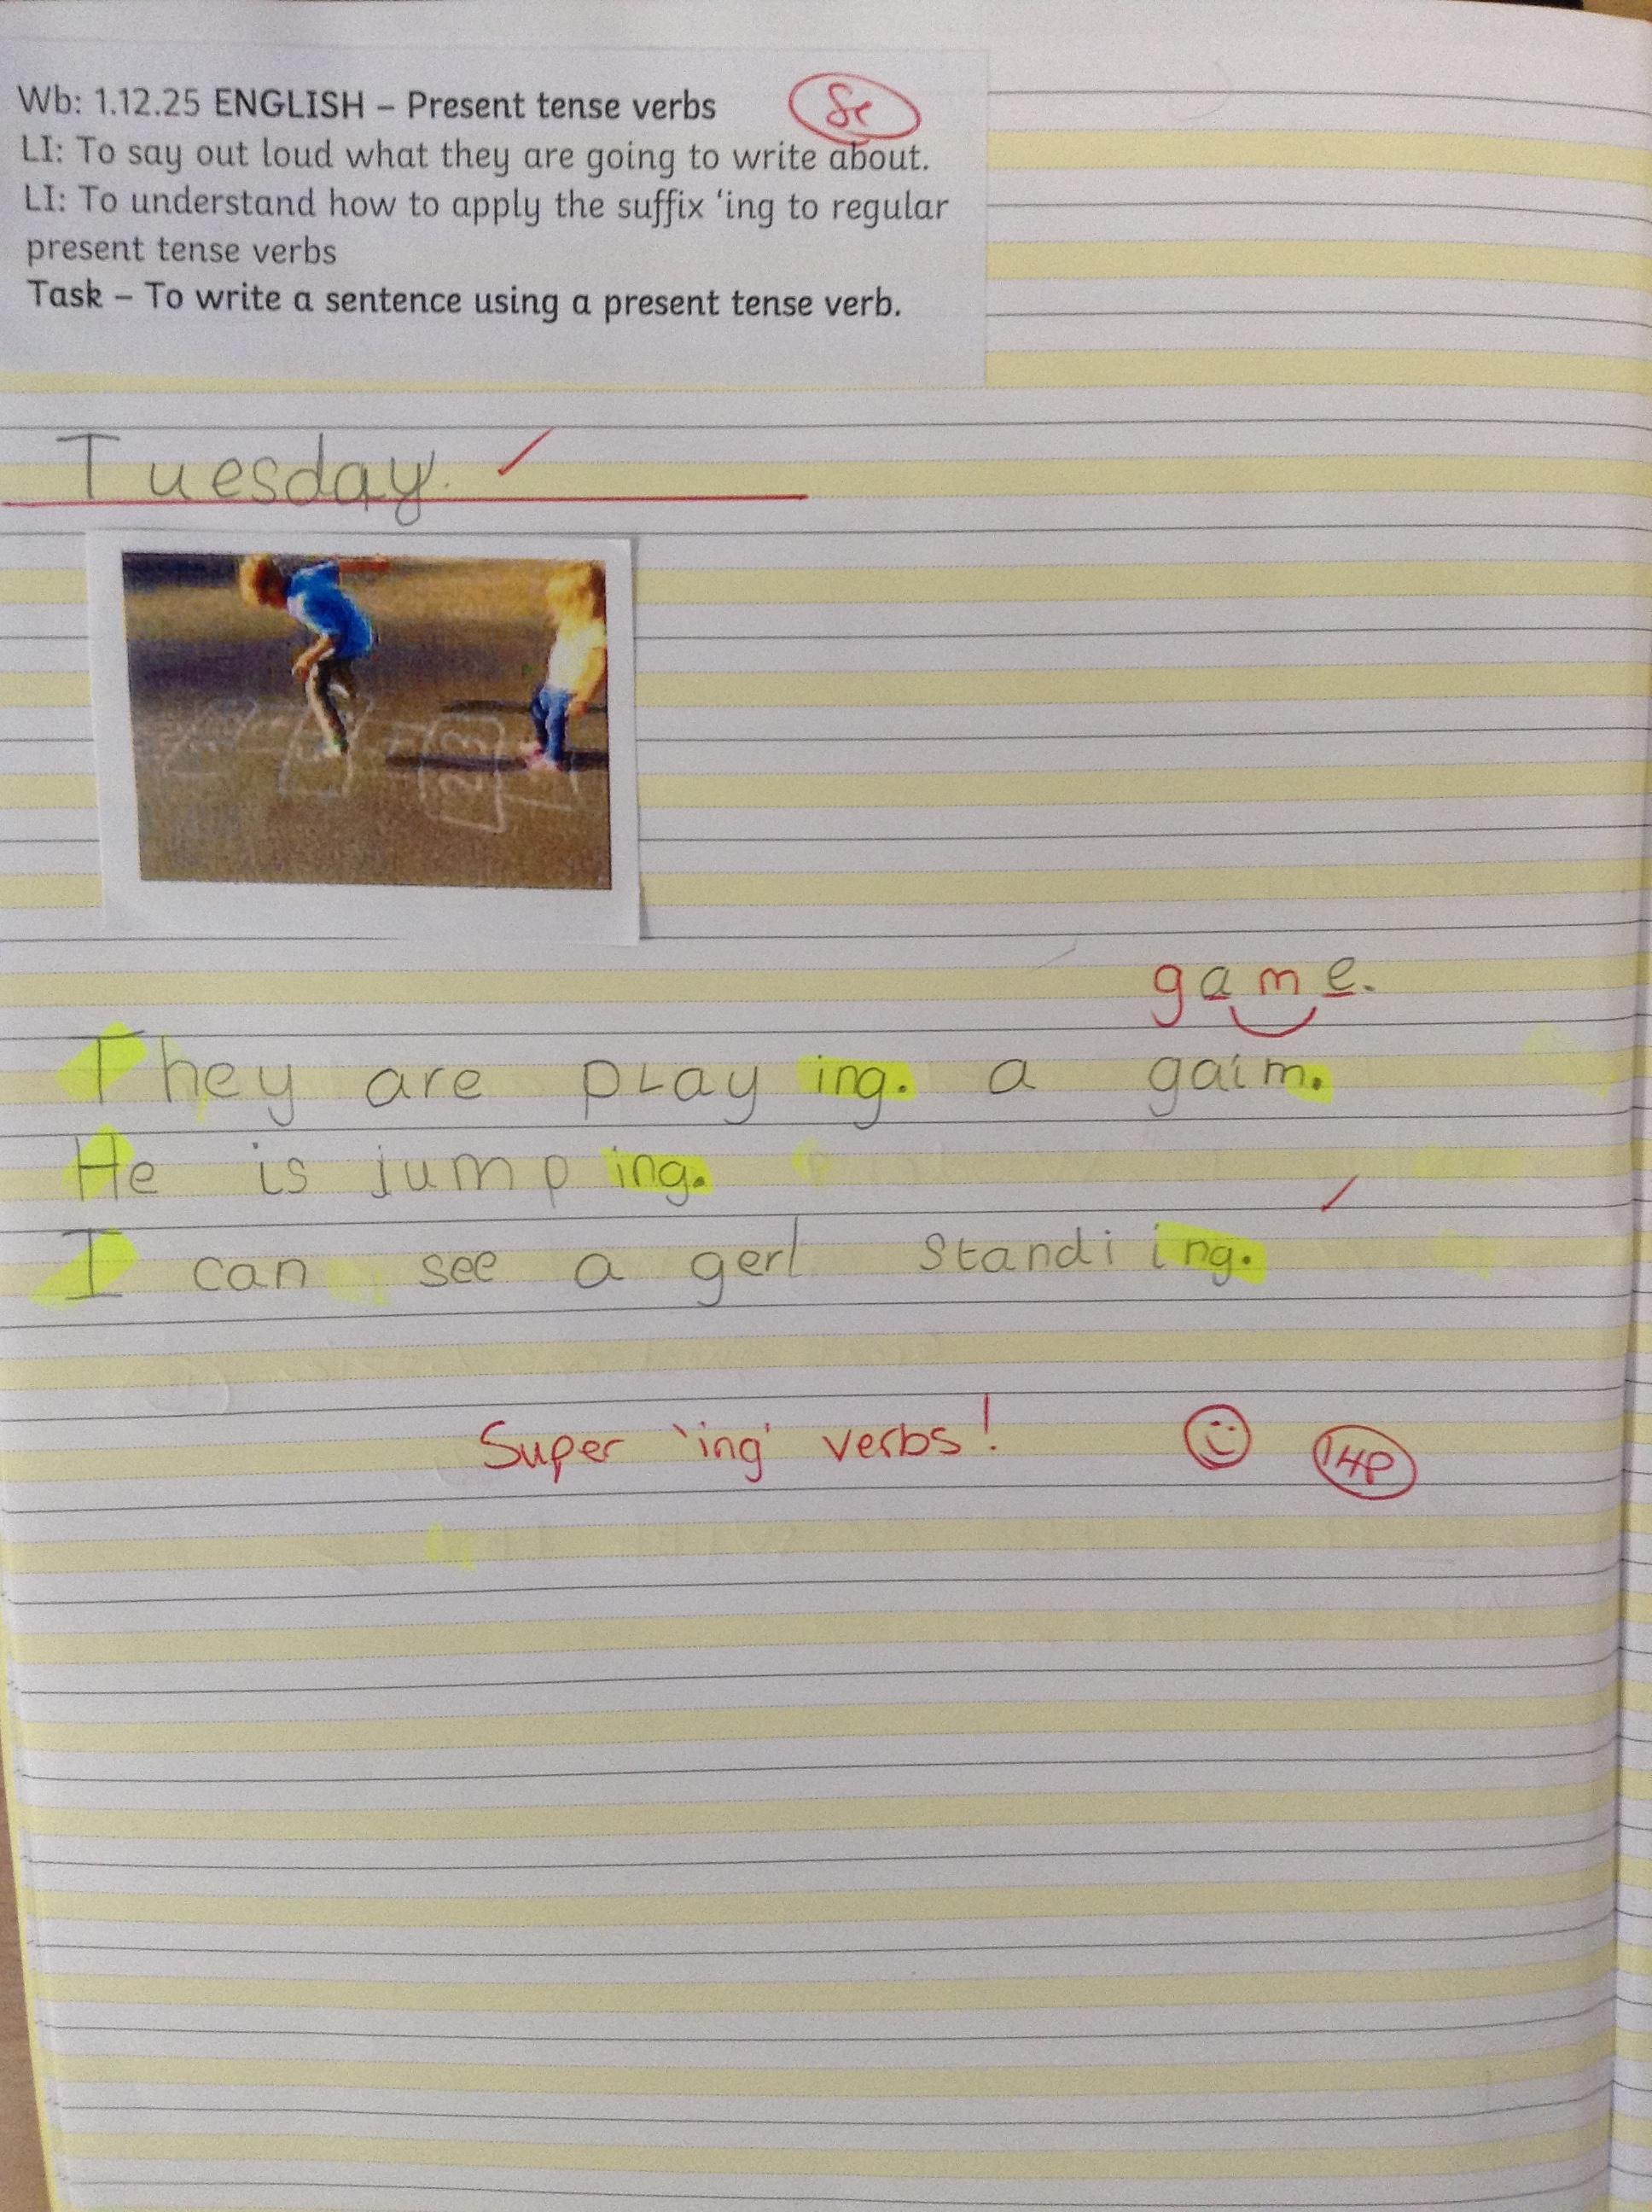 Wb: 1.12.25 ENGLISH – Present tense verbs
LI: To say out loud what they are going to write about.
LI: To understand how to apply the suffix ‘ing to regular
present tense verbs
Task – To write a sentence using a present tense verb.
Tuesday.
game.
They are play ing. a gaim.
He is jump ing.
I can see a gerl standi ing.
Super 'ing' verbs!